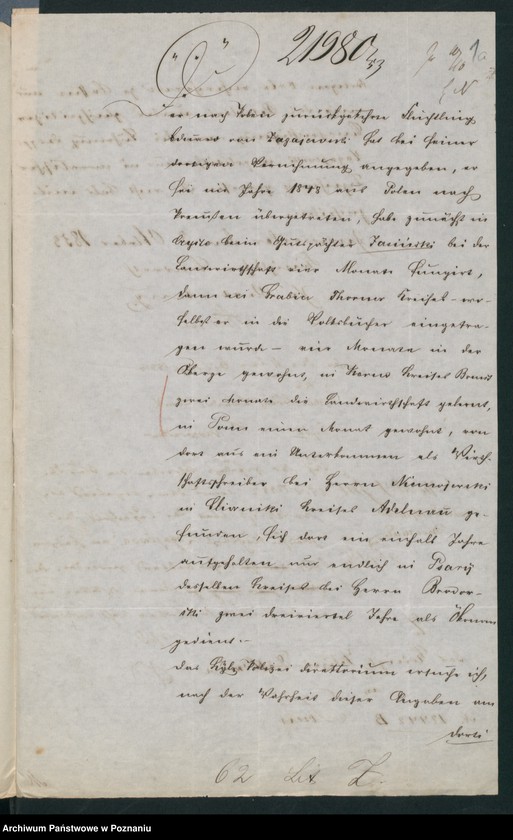 21980/53
Der nach Polen zurückgekehrte Flüchtling
von hat bei seiner
dortigen Vernehmung angegeben, er
sei im Jahre 1843 aus Polen nach
Preußen übergetreten, habe zunächst in
beim Gutspächter Janicki bei der
Landwirthschaft vier Monate fungirt,
dann in Grabia Thorner Kreises – wo-
selbst er in die Volksbücher eingetra-
gen wurde – vier Monate in der
gewohnt, in Kreises
zwei Monate die Landwirthschaft gelernt,
in Posen einen Monat gewohnt, von
dort aus ein Unterkommen als Wirth-
schaftsschreiber bei Herrn
in Kreises Adelnau ge-
funden, sich dort ein einhalb Jahre
aufgehalten und endlich in Psary
desselben Kreises bei Herrn
zwei dreiviertel Jahre als Ökonom
gedient.–
Das Kgl. Polizei Direktorium ersuche ich,
nach der Wahrheit dieser Angaben am
dorti
62 Lit Z.
Archiwum Państwowe w Poznaniu